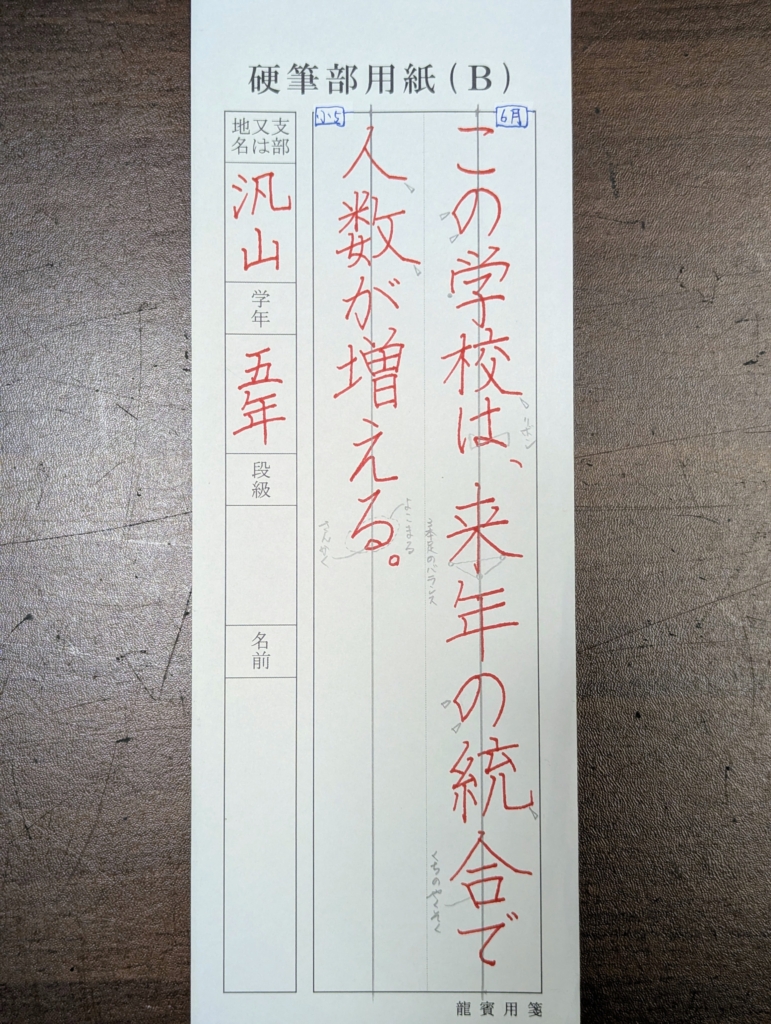 硬筆部用紙(B)
6月
この学校は、来年の統合で
小5
人数が増える。
支部又は地名
汎山
学年
五年
段級
名前
リボン
三本足のバランス
よこまる
さんかく
くちのやくそく
龍賓用箋